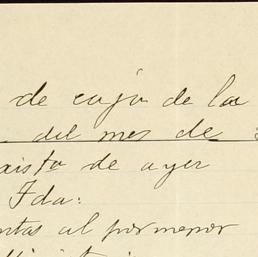 de caja de la
del mes de
de ayer
Fda:
ntas al pormenor